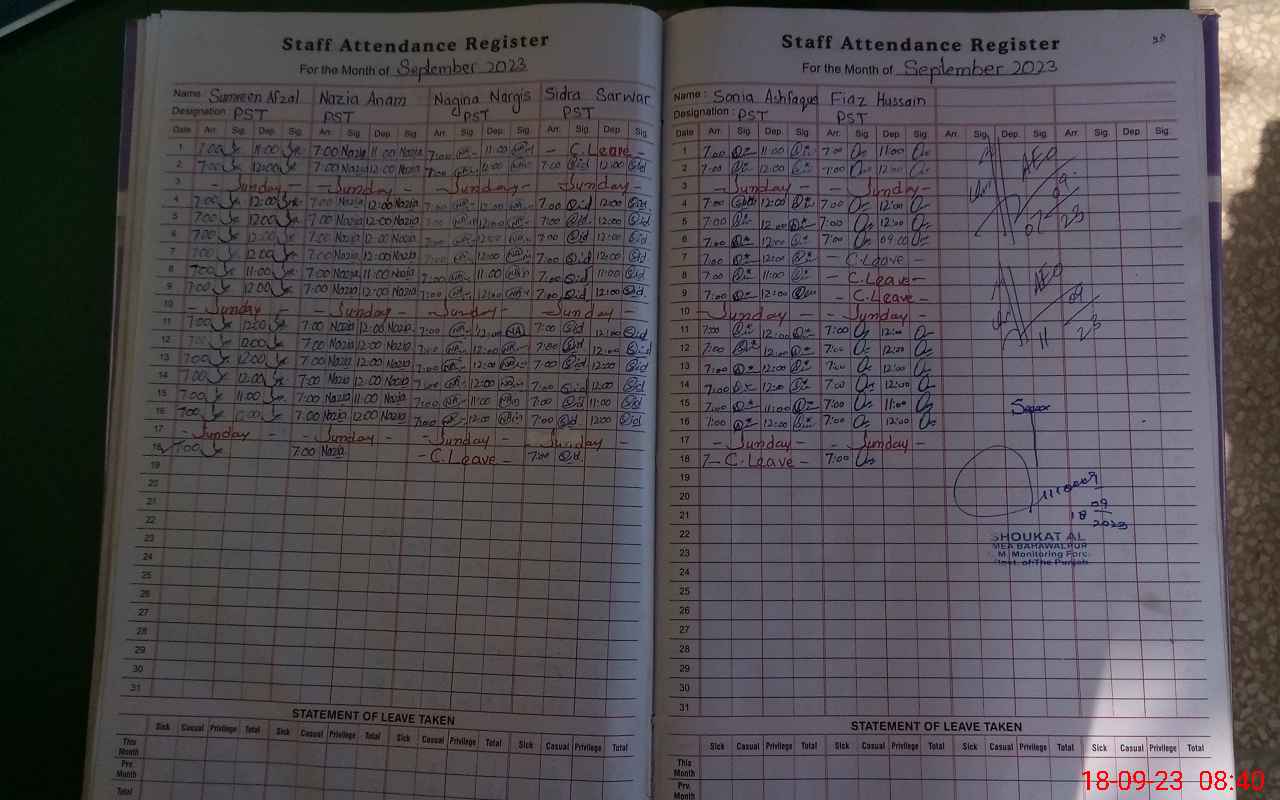 Staff Attendance Register
For the Month of September 2023
Name Sumreen Afzal Nazia Anam Nagina Nargis Sidra Sarwar
Designation : PST PST PST PST
Date Arr. Sig. Dep. Sig. Arr. Sig. Dep. Sig. Arr. Sig. Dep. Sig. Arr. Sig. Dep. Sig.
1 7:00 11:00 7:00 Nazia 11:00 Nazia 7:00 11:00 - C.Leave -
2 7:00 12:00 7:00 Nazia 12:00 Nazia 7:00 12:00 7:00 Sid 12:00 Sid
3 - Sunday - - Sunday - - Sunday - - Sunday -
4 7:00 12:00 7:00 Nazia 12:00 Nazia 7:00 12:00 7:00 Sid 12:00 Sid
5 7:00 12:00 7:00 Nazia 12:00 Nazia 7:00 12:00 7:00 Sid 12:00 Sid
6 7:00 12:00 7:00 Nazia 12:00 Nazia 7:00 12:00 7:00 Sid 12:00 Sid
7 7:00 12:00 7:00 Nazia 12:00 Nazia 7:00 12:00 7:00 Sid 12:00 Sid
8 7:00 11:00 7:00 Nazia 11:00 Nazia 7:00 11:00 7:00 Sid 11:00 Sid
9 7:00 12:00 7:00 Nazia 12:00 Nazia 7:00 12:00 7:00 Sid 12:00 Sid
10 - Sunday - - Sunday - - Sunday - - Sunday -
11 7:00 12:00 7:00 Nazia 12:00 Nazia 7:00 12:00 7:00 Sid 12:00 Sid
12 7:00 12:00 7:00 Nazia 12:00 Nazia 7:00 12:00 7:00 Sid 12:00 Sid
13 7:00 12:00 7:00 Nazia 12:00 Nazia 7:00 12:00 7:00 Sid 12:00 Sid
14 7:00 12:00 7:00 Nazia 12:00 Nazia 7:00 12:00 7:00 Sid 12:00 Sid
15 7:00 11:00 7:00 Nazia 11:00 Nazia 7:00 11:00 7:00 Sid 11:00 Sid
16 7:00 12:00 7:00 Nazia 12:00 Nazia 7:00 12:00 7:00 Sid 12:00 Sid
17 - Sunday - - Sunday - - Sunday - - Sunday -
18 7:00 7:00 Nazia - C.Leave - 7:00 Sid
19
20
21
22
23
24
25
26
27
28
29
30
31
STATEMENT OF LEAVE TAKEN
Sick Casual Privilege Total Sick Casual Privilege Total Sick Casual Privilege Total Sick Casual Privilege Total
This Month
Prv. Month
Total
Staff Attendance Register
For the Month of September 2023
Name : Sonia Ashfaque Fiaz Hussain
Designation : PST PST
Date Arr. Sig. Dep. Sig. Arr. Sig. Dep. Sig. Arr. Sig. Dep. Sig. Arr. Sig. Dep. Sig.
1 7:00 11:00 7:00 11:00
2 7:00 12:00 7:00 12:00
3 - Sunday - - Sunday -
4 7:00 12:00 7:00 12:00
5 7:00 12:00 7:00 12:00
6 7:00 12:00 7:00 09:00
7 7:00 12:00 - C.Leave -
8 7:00 11:00 - C.Leave -
9 7:00 12:00 - C.Leave -
10 - Sunday - - Sunday -
11 7:00 12:00 7:00 12:00
12 7:00 12:00 7:00 12:00
13 7:00 12:00 7:00 12:00
14 7:00 12:00 7:00 12:00
15 7:00 11:00 7:00 11:00
16 7:00 12:00 7:00 12:00
17 - Sunday - - Sunday -
18 7 - C.Leave - 7:00
19
20
21
22
23
24
25
26
27
28
29
30
31
AEO
07 09 23
AEO
11 09 23
18 09 2023
SHOUKAT AL
MEA BAHAWALPUR
M Monitoring Forc
STATEMENT OF LEAVE TAKEN
Sick Casual Privilege Total Sick Casual Privilege Total Sick Casual Privilege Total Sick Casual Privilege Total
This Month
Prv. Month
18-09-23 08:40